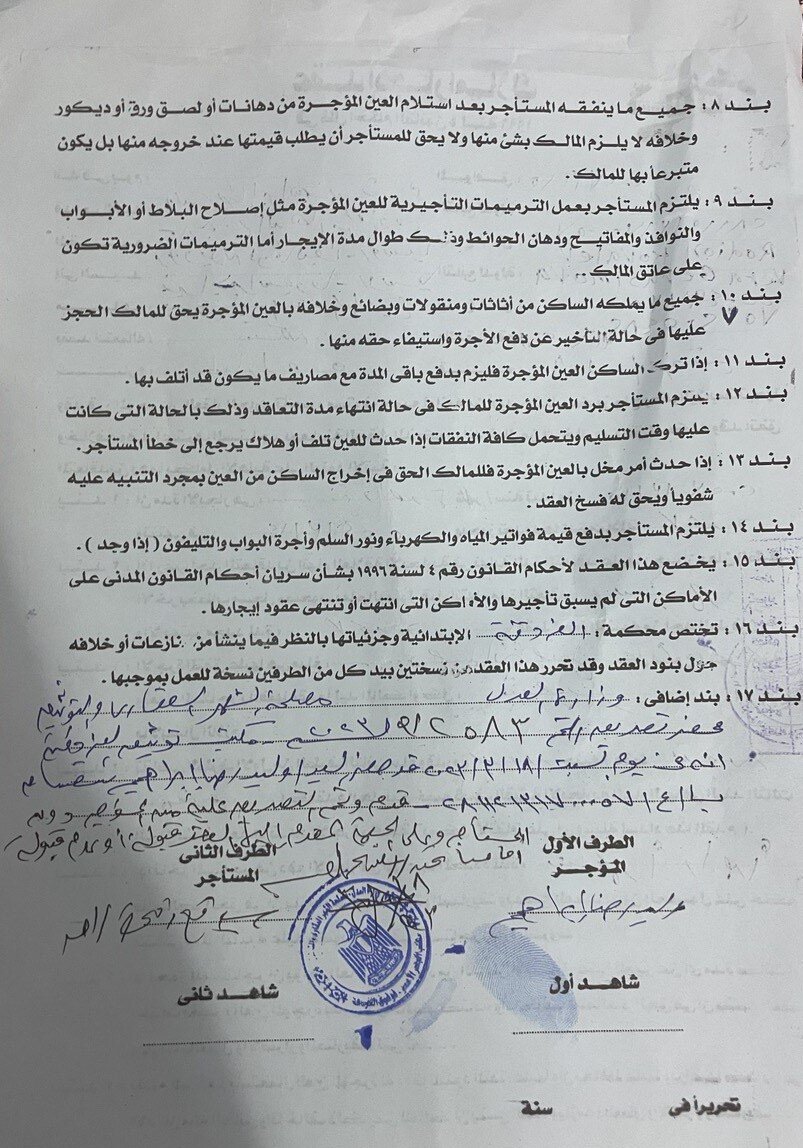 بند ٨ : جميع ما ينفقه المستأجر بعد استلام العين المؤجرة من دهانات أو لصق ورق أو ديكور
وخلافه لا يلزم المالك بشئ منها ولا يحق للمستأجر أن يطلب قيمتها عند خروجه منها بل يكون
متبرعاً بها للمالك .
بند ٩ : يلتزم المستأجر بعمل الترميمات التأجيرية للعين المؤجرة مثل إصلاح البلاط أو الأبواب
والنوافذ والمفاتيح ودهان الحوائط وذلك طوال مدة الإيجار أما الترميمات الضرورية تكون
على عاتق المالك ..
بند ١٠ : جميع ما يملكه الساكن من أثاثات ومنقولات وبضائع وخلافه بالعين المؤجرة يحق للمالك الحجز
عليها فى حالة التأخير عن دفع الأجرة واستيفاء حقه منها .
بند ١١ : إذا ترك الساكن العين المؤجرة فليزم بدفع باقى المدة مع مصاريف ما يكون قد أتلف بها .
بند ١٢ : يلتزم المستأجر برد العين المؤجرة للمالك فى حالة انتهاء مدة التعاقد وذلك بالحالة التى كانت
عليها وقت التسليم ويتحمل كافة النفقات إذا حدث للعين تلف أو هلاك يرجع إلى خطأ المستأجر .
بند ١٣ : إذا حدث أمر مخل بالعين المؤجرة فللمالك الحق فى إخراج الساكن من العين بمجرد التنبيه عليه
شفوياً ويحق له فسخ العقد .
بند ١٤ : يلتزم المستأجر بدفع قيمة فواتير المياه والكهرباء ونور السلم وأجرة البواب والتليفون ( إذا وجد ) .
بند ١٥ : يخضع هذا العقد لأحكام القانون رقم ٤ لسنة ١٩٩٦ بشأن سريان أحكام القانون المدنى على
الأماكن التى لم يسبق تأجيرها والأماكن التى انتهت أو تنتهى عقود إيجارها .
بند ١٦ : تختص محكمة : الغردقة الإبتدائية وجزئياتها بالنظر فيما ينشأ من نازعات أو خلافه
حول بنود العقد وقد تحرر هذا العقد من نسختين بيد كل من الطرفين نسخة للعمل بموجبها .
بند ١٧ : بند إضافى : وزارة العدل مصلحة الشهر العقارى والتوثيق
محضر تصديق رقم مكتب توثيق الغردقة
انه فى يوم السبت
الطرف الأول الطرف الثانى
المؤجر المستأجر
وليد رضا إبراهيم
شاهد أول شاهد ثانى
تحريراً فى سنة